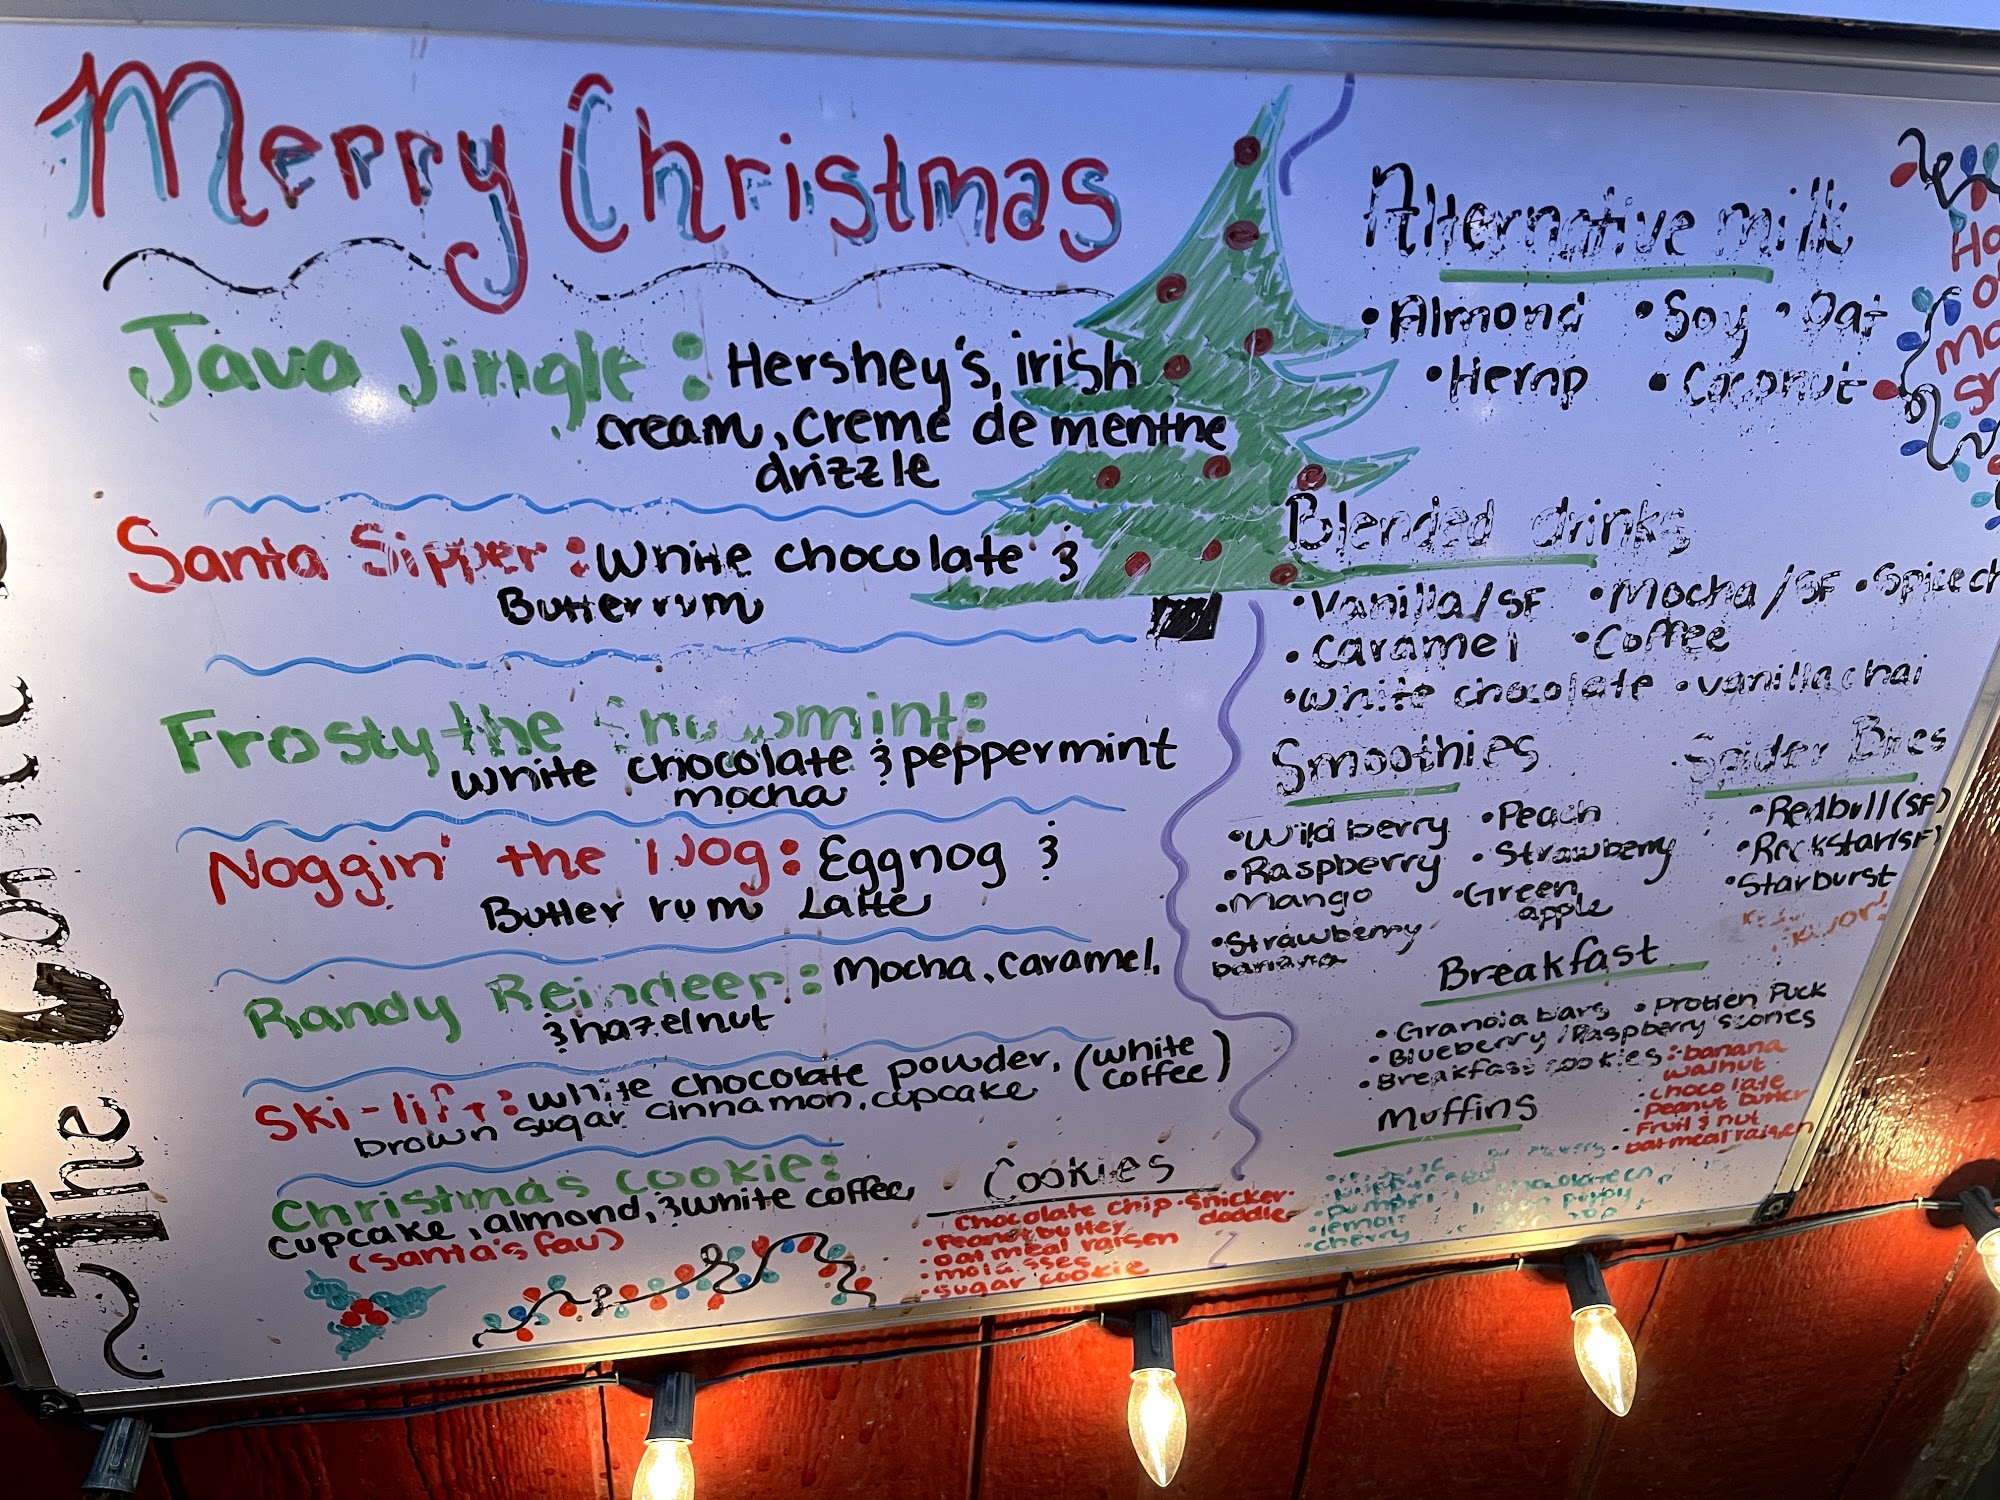 Merry Christmas
Java Jingle: Hershey's, irish
cream, creme de menthe
drizzle
Santa Sipper: White chocolate &
Butter rum
Frosty the Snowmint:
white chocolate & peppermint
mocha
Noggin' the Nog: Eggnog &
Butter rum Latte
Randy Reindeer: Mocha, caramel,
& hazelnut
Ski-lift: white chocolate powder, (white
brown sugar cinnamon, cupcake coffee)
Christmas cookie:
cupcake, almond, & white coffee
(santa's fav)
Cookies
Chocolate chip • Snicker-
doodle
• Peanut butter
• oatmeal raisen
• molasses
• sugar cookie
Alternative milk
• Almond • Soy • Oat
• Hemp • Coconut
Blended drinks
• Vanilla/SF • Mocha/SF • Spice ch
• caramel • Coffee
• white chocolate • vanilla chai
Smoothies
• Wild berry • Peach
• Raspberry • Strawberry
• Mango • Green
apple
• Strawberry
banana
Spider Bites
• Redbull (SF)
• Rockstar (SF)
• Starburst
Breakfast
• Granola bars • Protien Puck
• Blueberry/Raspberry scones
• Breakfast cookies: banana
walnut
• chocolate
• peanut butter
• Fruit & nut
• oatmeal raisen
Muffins
• lemon
• cherry
The